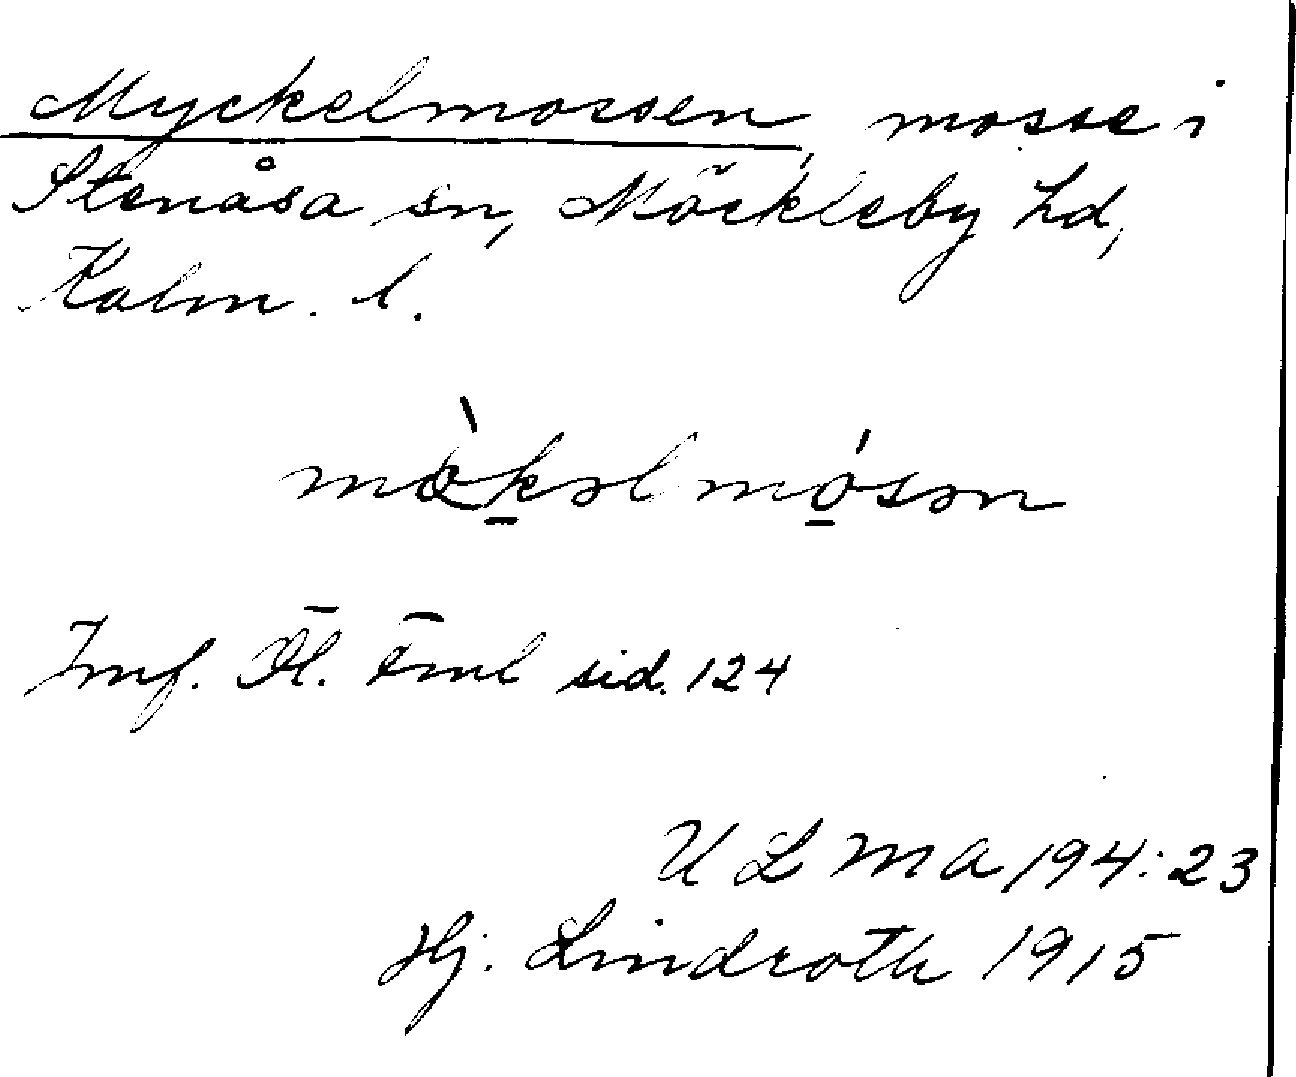 Myckelmossen, mosse i
Stenåsa sn, Möckleby hd,
Kalm. l.
mø̀kəlmósən
Jmf. Öl. Fml sid. 124
ULMA 194:23
Hj. Lindroth 1915